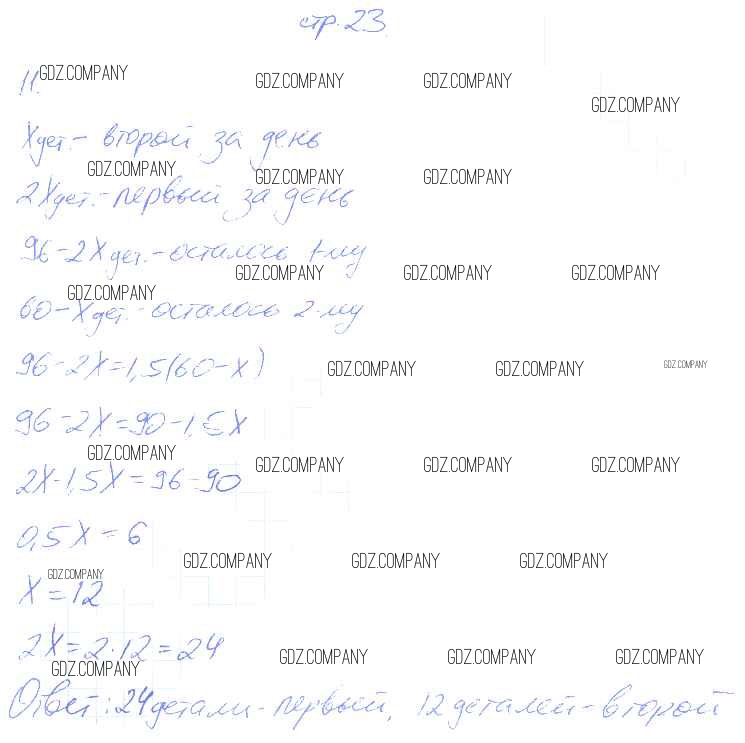 стр. 23.
11. GDZ.COMPANY GDZ.COMPANY GDZ.COMPANY
GDZ.COMPANY
Xдет. - второй за день
GDZ.COMPANY GDZ.COMPANY GDZ.COMPANY
2Xдет. - первый за день
96-2Xдет. - осталось 1-му
GDZ.COMPANY GDZ.COMPANY GDZ.COMPANY
GDZ.COMPANY
60-Xдет. - осталось 2-му
96-2X=1,5(60-X)
GDZ.COMPANY GDZ.COMPANY GDZ.COMPANY
96-2X=90-1,5X
GDZ.COMPANY GDZ.COMPANY GDZ.COMPANY GDZ.COMPANY
2X-1,5X=96-90
0,5X=6
GDZ.COMPANY GDZ.COMPANY GDZ.COMPANY
GDZ.COMPANY
X=12
2X=2·12=24
GDZ.COMPANY GDZ.COMPANY GDZ.COMPANY
GDZ.COMPANY
Ответ: 24детали - первый, 12деталей - второй